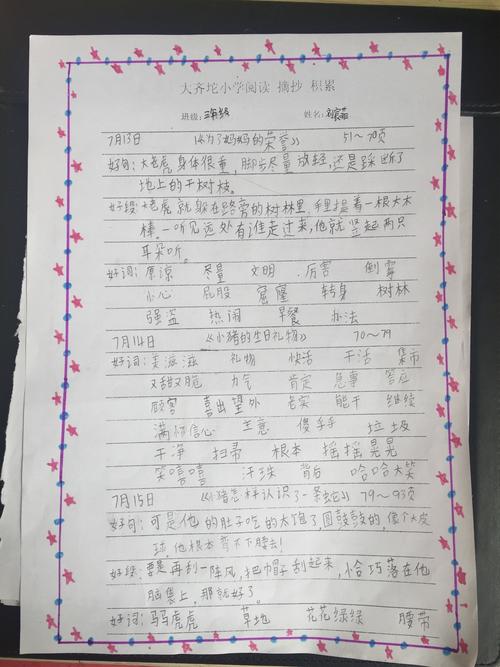 大齐坨小学阅读 摘抄 积累
班级: 三年级 姓名:
7月13日 《为了妈妈的荣誉》 51~70页
好句:大老虎身体很重,脚步尽量放轻,还是踩断了
地上的干树枝。
好段:老虎就躲在路旁的树林里,手里提着一根大木
棒。一听见远处有谁走过来,他就竖起两只
耳朵听。
好词:原谅 尽量 文明 厉害 倒霉
小心 屁股 窟窿 转身 树林
强盗 热闹 早餐 办法
7月14日 《小猪的生日礼物》 70~79
好词:美滋滋 礼物 快活 干活 集市
又甜又脆 力气 肯定 急事 答应
顾客 喜出望外 老实 能干 继续
满怀信心 主意 傻乎乎 垃圾
干净 扫帚 根本 摇摇晃晃
笑嘻嘻 汗珠 背后 哈哈大笑
7月15日 《小猪怎样认识了一条蛇》 79~93页
好句:可是他的肚子吃的太饱了,圆鼓鼓的,像个大皮
球,他根本弯不下腰去!
好段:要是再刮一阵风,把帽子刮起来,恰巧落在他
脑袋上,那就好了。
好词:马马虎虎 草地 花花绿绿 腰带